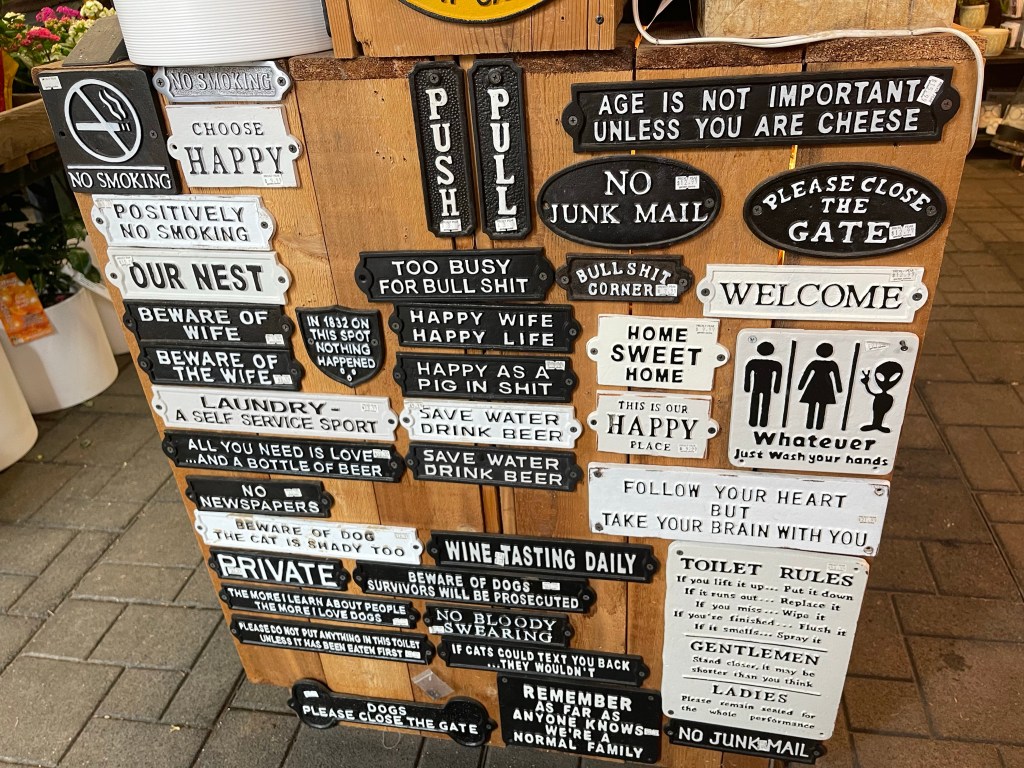 NO SMOKING
NO SMOKING
CHOOSE
HAPPY
POSITIVELY
NO SMOKING
OUR NEST
BEWARE OF
WIFE
BEWARE OF
THE WIFE
IN 1832 ON
THIS SPOT
NOTHING
HAPPENED
PUSH
PULL
AGE IS NOT IMPORTANT
UNLESS YOU ARE CHEESE
NO
JUNK MAIL
PLEASE CLOSE
THE
GATE
TOO BUSY
FOR BULL SHIT
BULLSHIT
CORNER
WELCOME
HAPPY WIFE
HAPPY LIFE
HAPPY AS A
PIG IN SHIT
HOME
SWEET
HOME
Whatever
Just Wash your hands
LAUNDRY-
A SELF SERVICE SPORT
SAVE WATER
DRINK BEER
THIS IS OUR
HAPPY
PLACE
ALL YOU NEED IS LOVE
...AND A BOTTLE OF BEER
SAVE WATER
DRINK BEER
NO
NEWSPAPERS
FOLLOW YOUR HEART
BUT
TAKE YOUR BRAIN WITH YOU
BEWARE OF DOG
THE CAT IS SHADY TOO
WINE TASTING DAILY
PRIVATE
BEWARE OF DOGS
SURVIVORS WILL BE PROSECUTED
THE MORE I LEARN ABOUT PEOPLE
THE MORE I LOVE DOGS
NO BLOODY
SWEARING
PLEASE DO NOT PUT ANYTHING IN THIS TOILET
UNLESS IT HAS BEEN EATEN FIRST
IF CATS COULD TEXT YOU BACK
...THEY WOULDN'T
TOILET RULES
If you lift it up... Put it down
If it runs out.... Replace it
If you miss... Wipe it
If you're finished... Flush it
If it smells... Spray it
GENTLEMEN
Stand closer, it may be
shorter than you think
LADIES
Please remain seated for
the whole performance
DOGS
PLEASE CLOSE THE GATE
REMEMBER
AS FAR AS
ANYONE KNOWS
WE'RE A
NORMAL FAMILY
NO JUNK MAIL